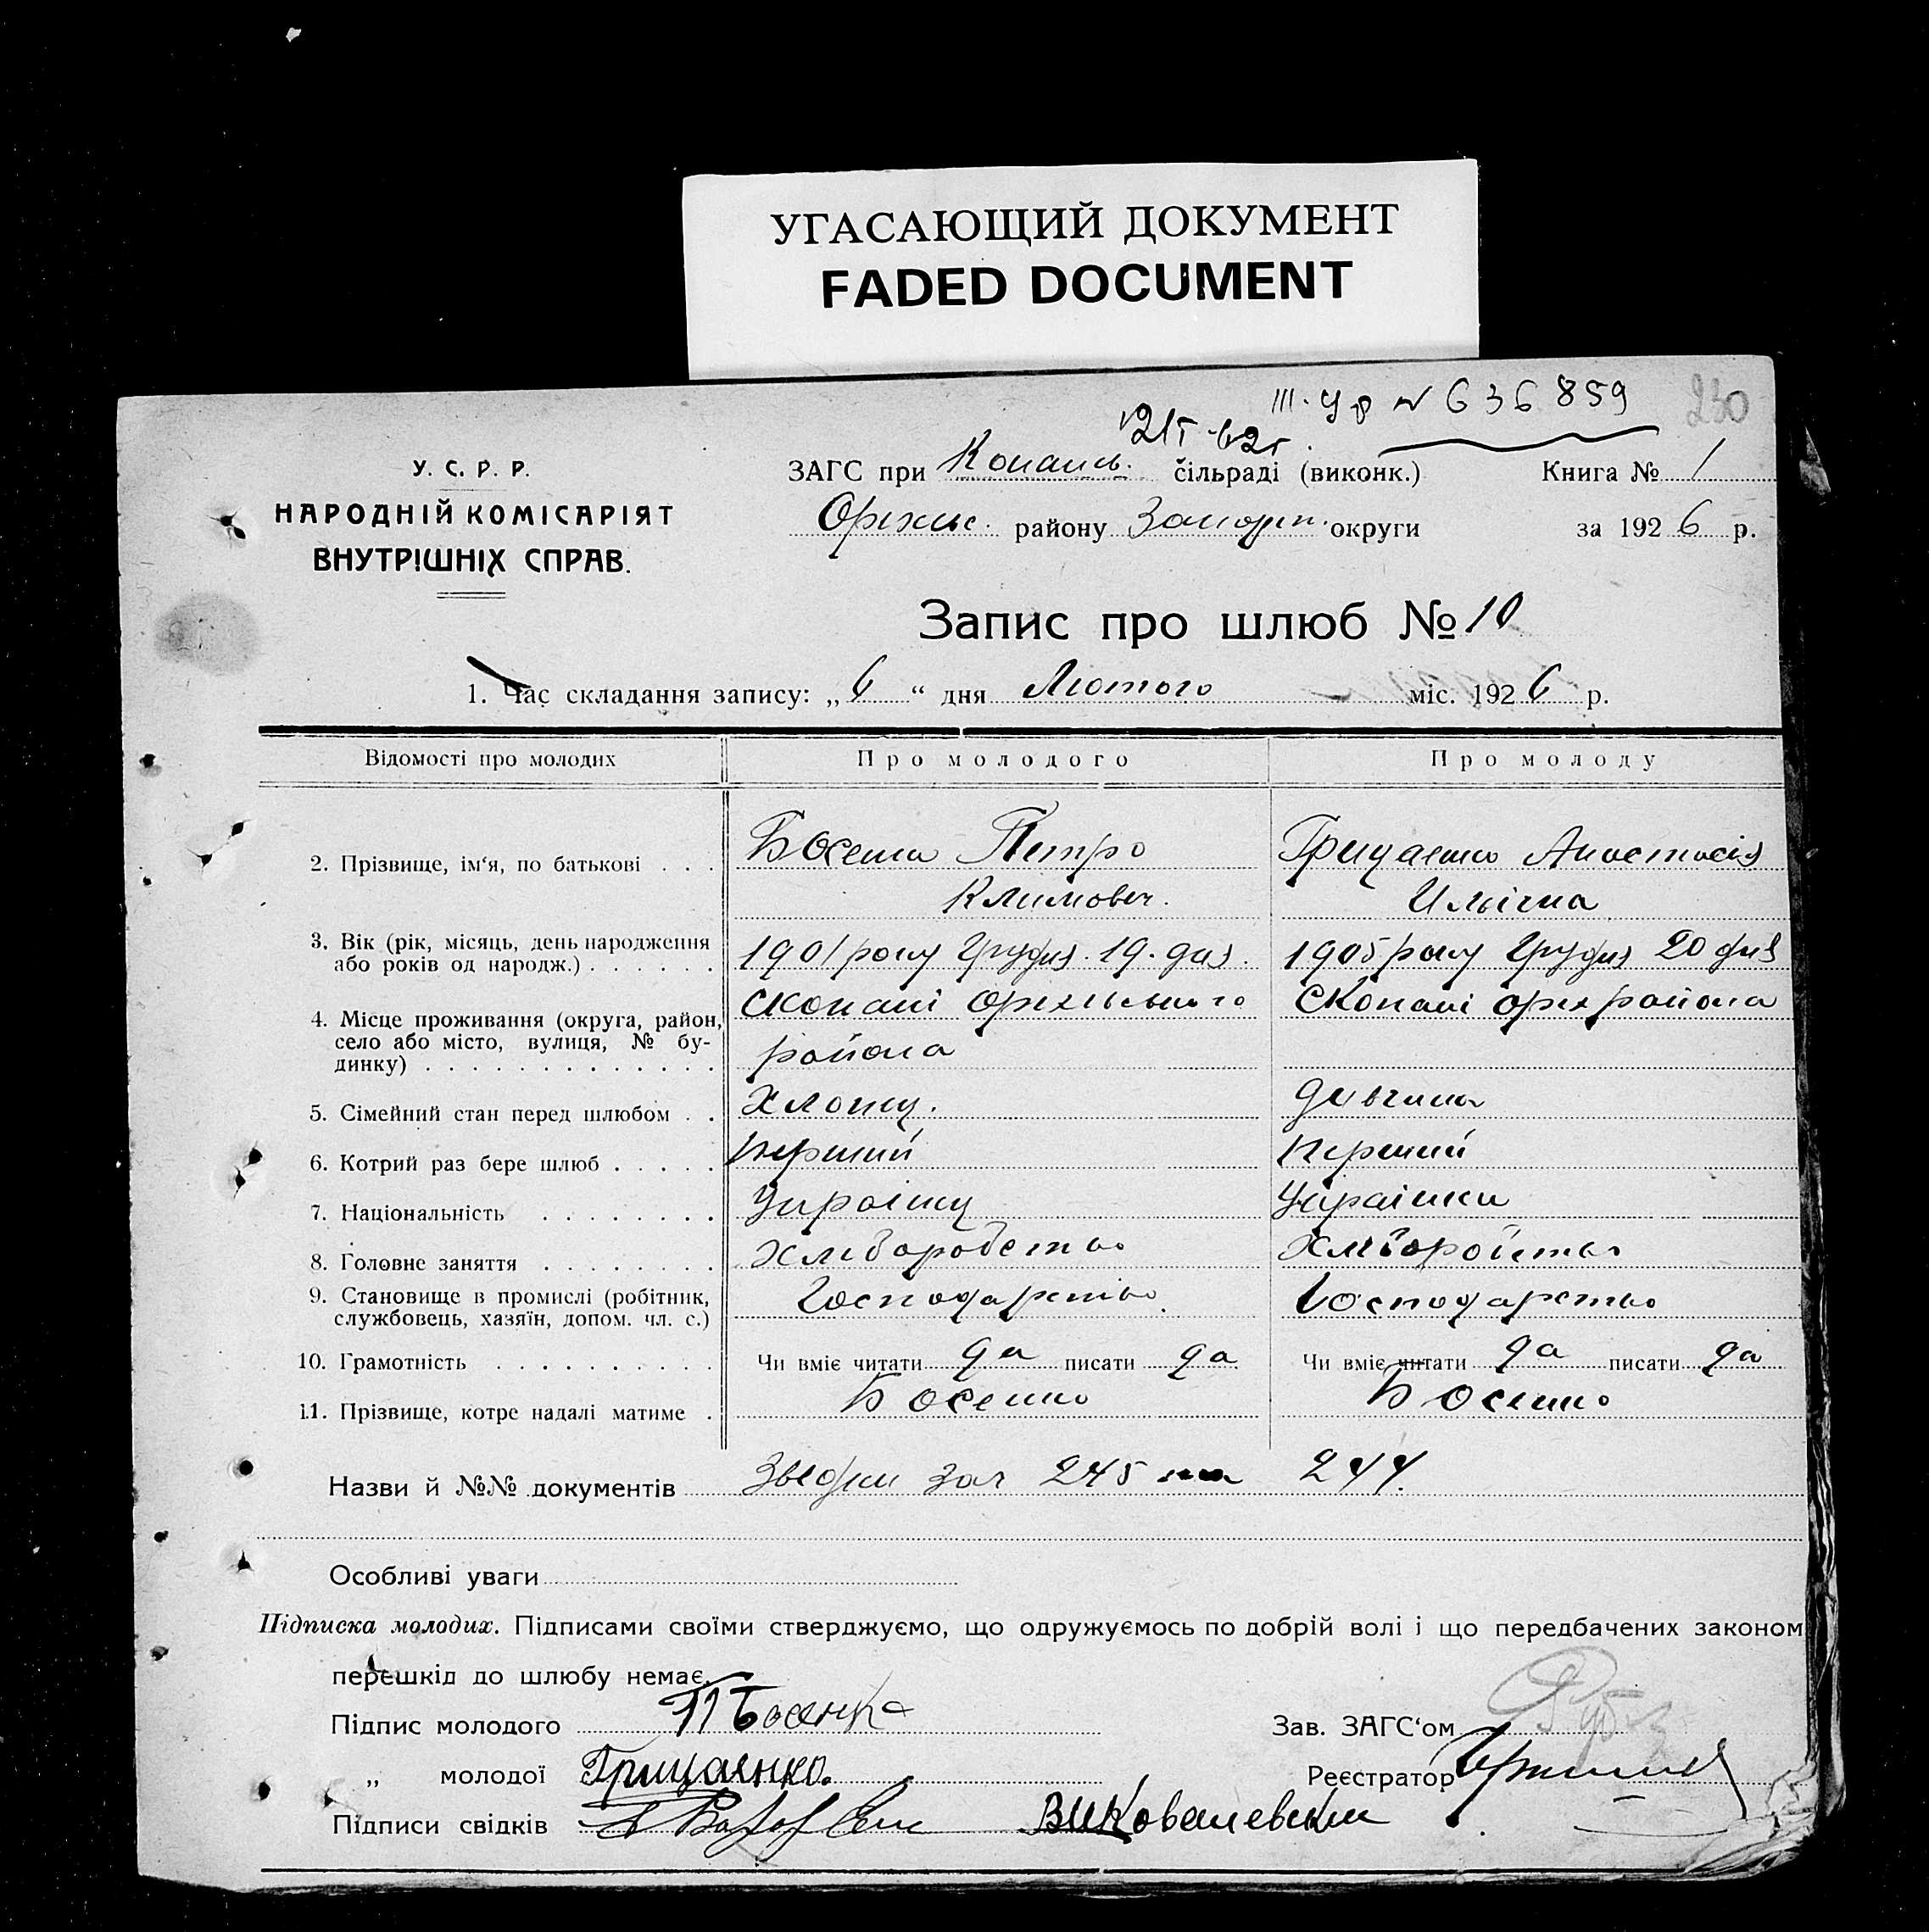 УГАСАЮЩИЙ ДОКУМЕНТ
FADED DOCUMENT
III. № 636859
230
У. С. Р. Р.
НАРОДНІЙ КОМІСАРІЯТ
ВНУТРІШНІХ СПРАВ.
ЗАГС при Копанів. сільраді (виконк.) Книга № 1
Оріхівс. району Запоріж. округи за 1926 р.
Запис про шлюб № 10
1. Час складання запису: „6“ дня Лютого міс. 1926 р.
Відомості про молодих Про молодого Про молоду
2. Прізвище, ім‘я, по батькові . . . Босенко Петро Грицаенко Анастасія
Климович. Ильічна
3. Вік (рік, місяць, день народження 1901 року Грудня 19. дня. 1905 року Грудня 20 дня
або років од народж.) . . . . . .
4. Місце проживання (округа, район, с Копані Оріхівського с Копані Оріх района
село або місто, вулиця, № бу-
динку) . . . . . . . . . . . . . района
5. Сімейний стан перед шлюбом . . Хлопец. дивчина
6. Котрий раз бере шлюб . . . . . перший перший
7. Національність . . . . . . . . Українец Українка
8. Головне заняття . . . . . . . . Хліборобство Хліборобство
9. Становище в промислі (робітник, Господарство Господарство
службовець, хазяїн, допом. чл. с.)
10. Грамотність . . . . . . . . . . Чи вміє читати да писати да Чи вміє читати да писати да
11. Прізвище, котре надалі матиме . Босенко Босенко
Назви й №№ документів 245 244.
Особливі уваги
Підписка молодих. Підписами своїми стверджуємо, що одружуємось по добрій волі і що передбачених законом
перешкід до шлюбу немає.
Підпис молодого П Босенко Зав. ЗАГС‘ом
„ молодої Грицаенко. Реєстратор
Підписи свідків